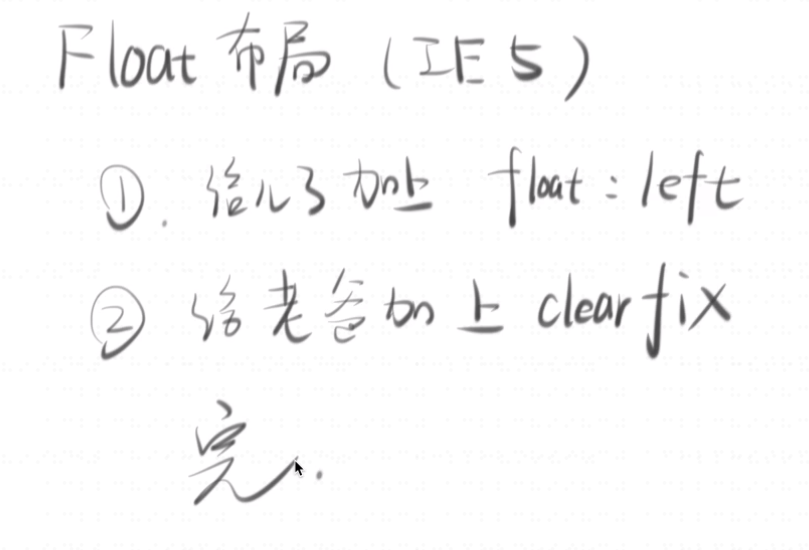 Float 布局 (IE 5)
①. 给儿子加上 float: left
② 给老爸加上 clearfix
完.